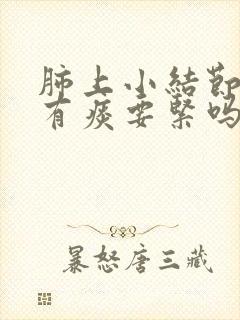 肺上小結節
有痰要緊嗎
暴怒唐三藏